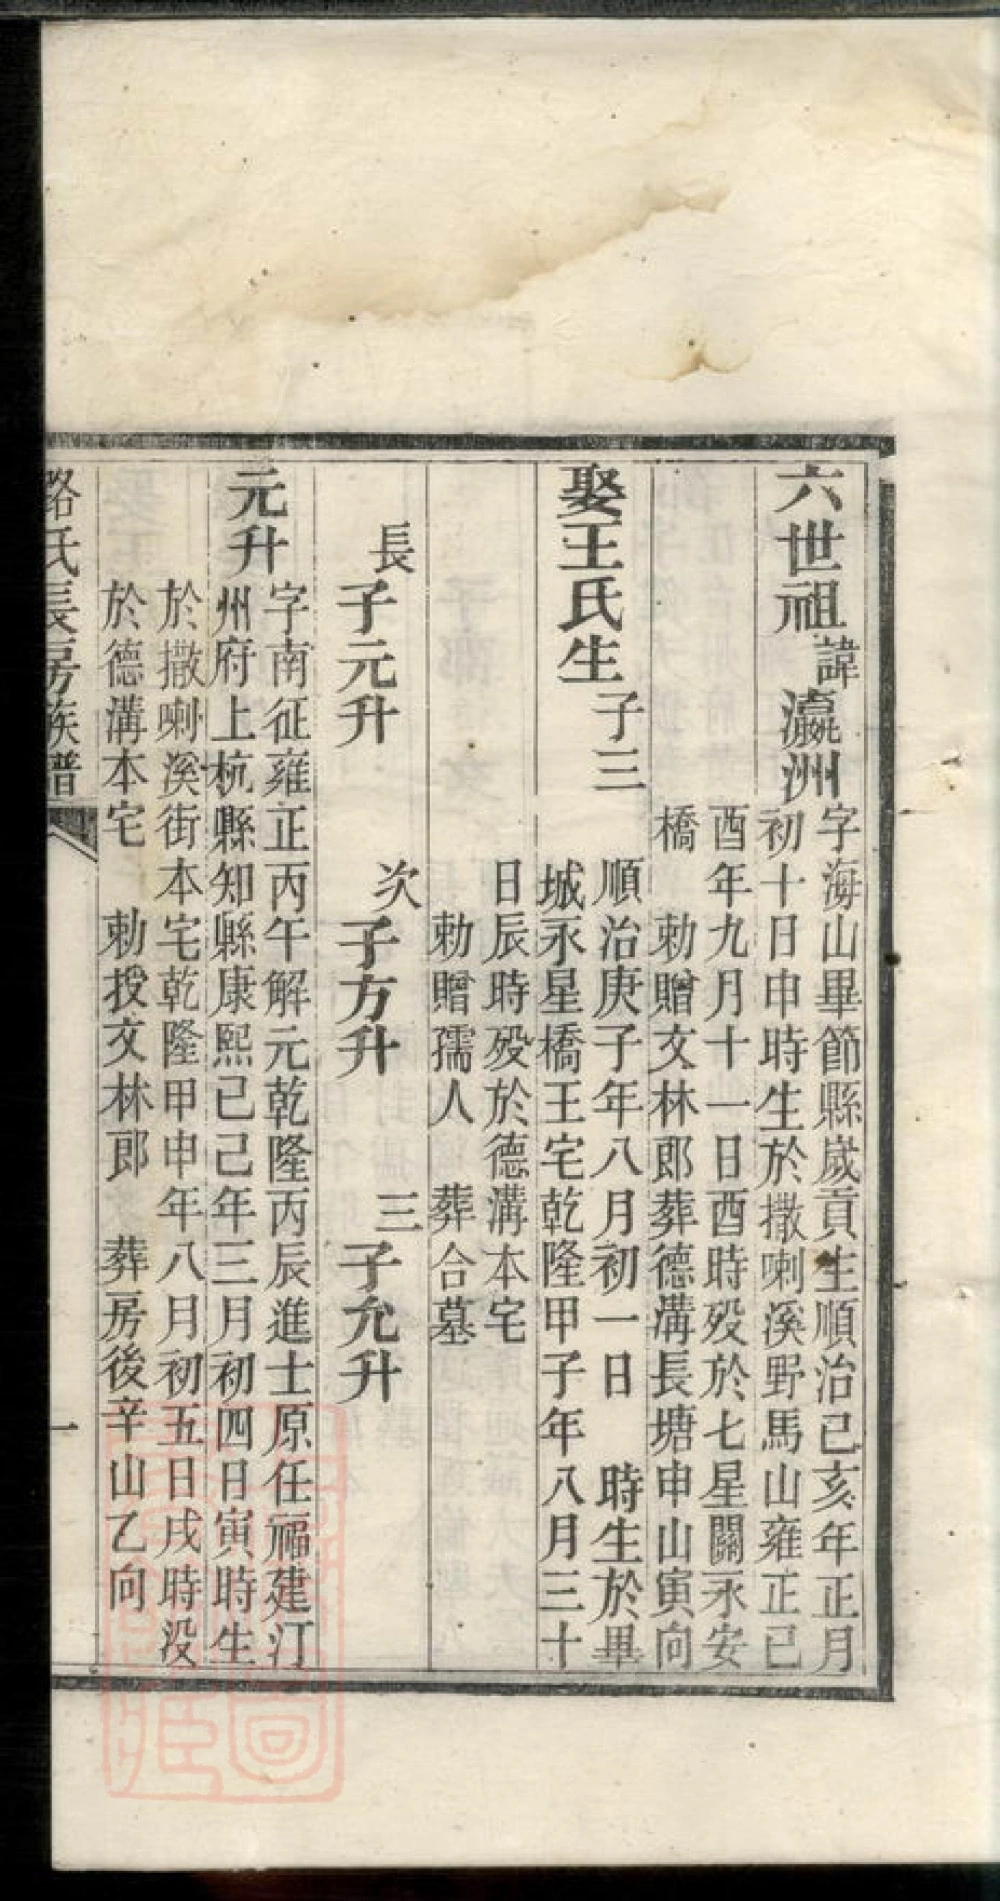 六世祖諱瀛洲字海山畢節縣歲貢生順治己亥年正月
初十日申時生於撒喇溪野馬山雍正己
酉年九月十一日酉時歿於七星關永安
橋 勅贈文林郎葬德溝長塘申山寅向
娶王氏生子三順治庚子年八月初一日 時生於畢
城永星橋王宅乾隆甲子年八月三十
日辰時歿於德溝本宅
勅贈孺人 葬合墓
長子元升 次子方升 三子允升
元升字南征雍正丙午解元乾隆丙辰進士原任福建汀
州府上杭縣知縣康熙己己年三月初四日寅時生
於撒喇溪街本宅乾隆甲申年八月初五日戌時没
於德溝本宅 勅授文林郎 葬房後辛山乙向
路氏長房族譜 一